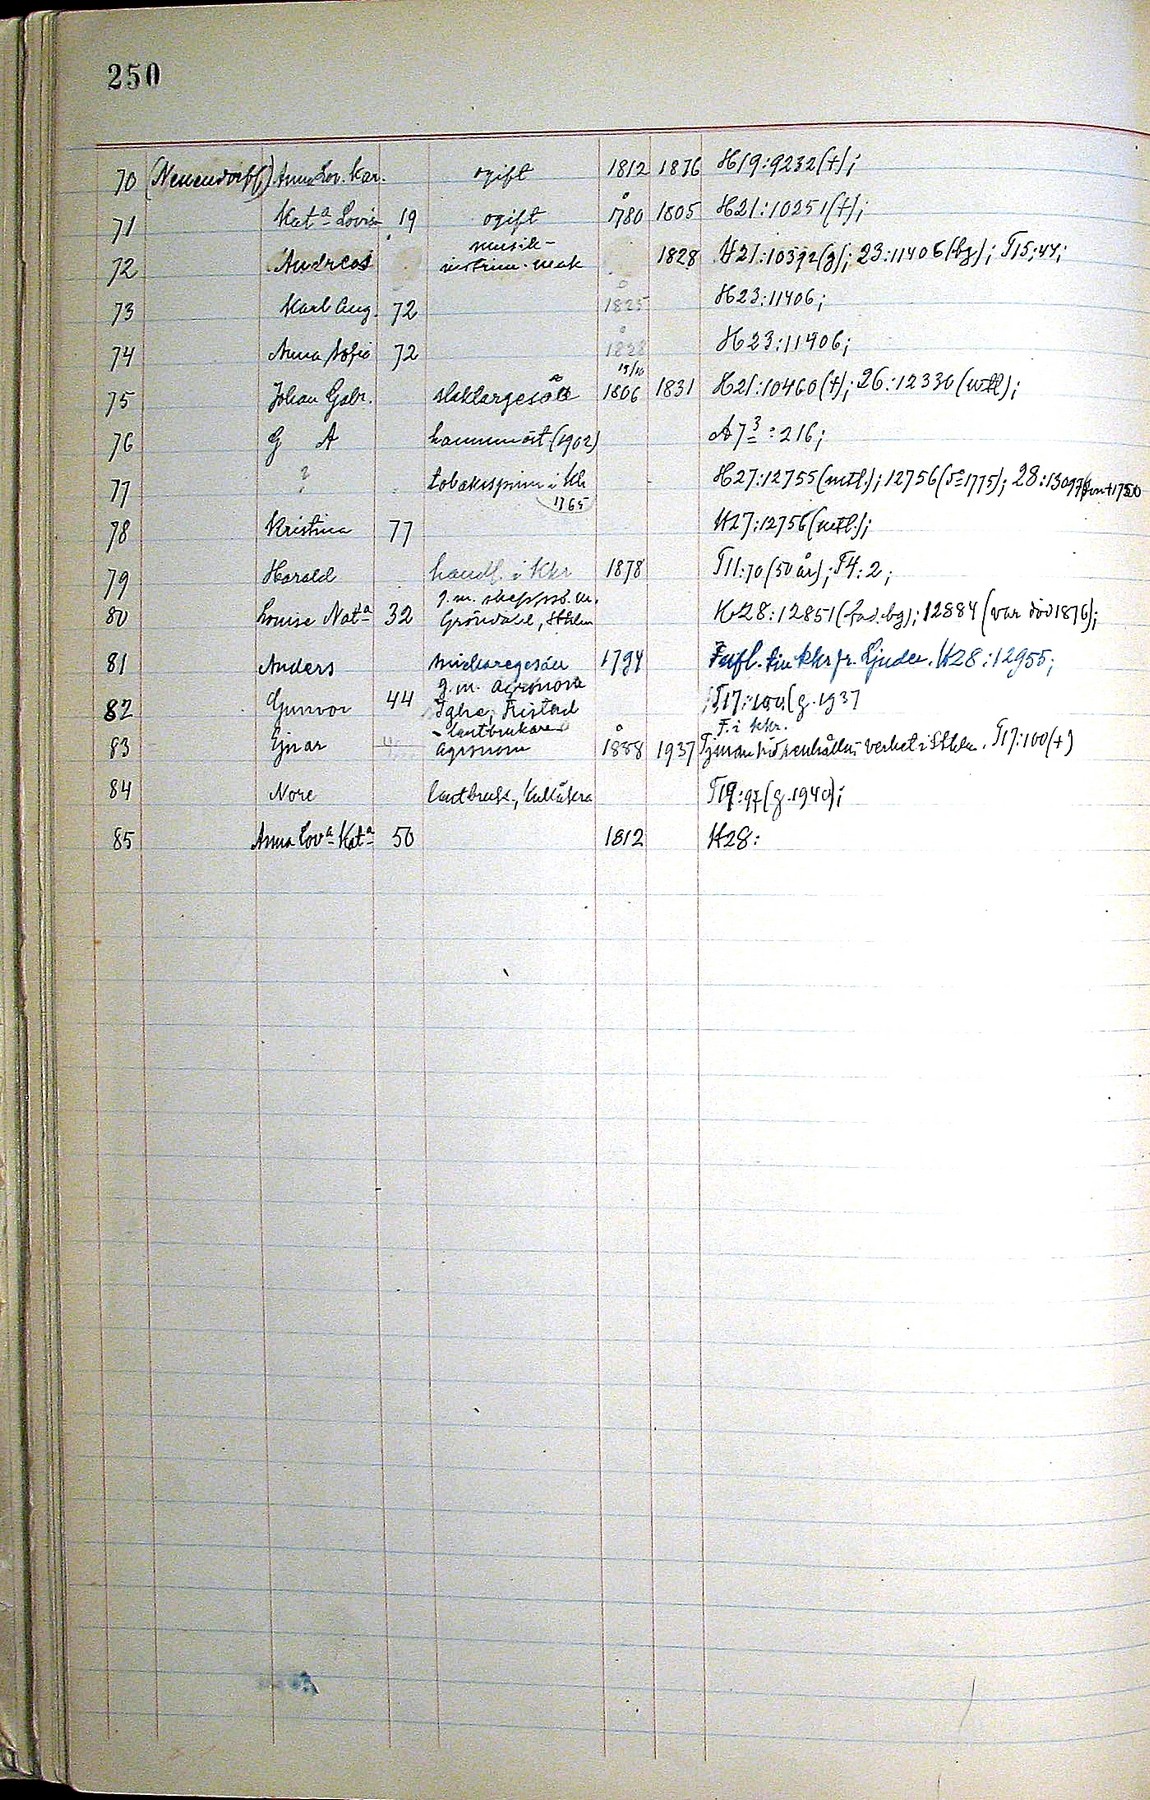 250
70 (Neuendorff) Anna Lov. Kar. ogift 1812 1876 H19:9232(†);
71 Kat.a Lovisa 19 ogift 1780 1805 H21:10251(†);
musik-
72 Andreas instrum. mak 1828 H21:10392(g); 23:11406(bg); T15:44;
73 Karl Aug. 72 1825 H23:11406;
74 Anna Sofia 72 1828 H23:11406;
15/10
75 Johan Gabr. slaktargesäll 1806 1831 H21:10460(†); 26:12330(mtl);
76 G A hammarst (1902) A73:216;
77 ? tobaksspinn i Kkr H27:12755(mtl.); 12756(1775); 28:13097
1765
78 Kristina 77 H27:12756(mtl.);
79 Harald handl. i Kkr 1878 T11:70(50 år); T4:2;
g.m. skeppsb. m.
80 Louise Nat.a 32 Gröndahl, Sthlm H28:12851(fad. bg); 12884 (var död 1876);
81 Anders snickaregesäll 1794 Infl. till Kkr fr. Ljuder. H28:12955;
g.m. agronom
82 Gunvor 44 Fristad T17:100(g. 1937
- lantbrukare F. i Kkr.
83 Ejnar agronom 1888 1937 Tjman v. renhålln. verket i Sthlm. T17:100(†)
84 Nore lantbruk., Kullåkra T19:97(g. 1940);
85 Anna Lov.a Kat.a 50 1812 H28: